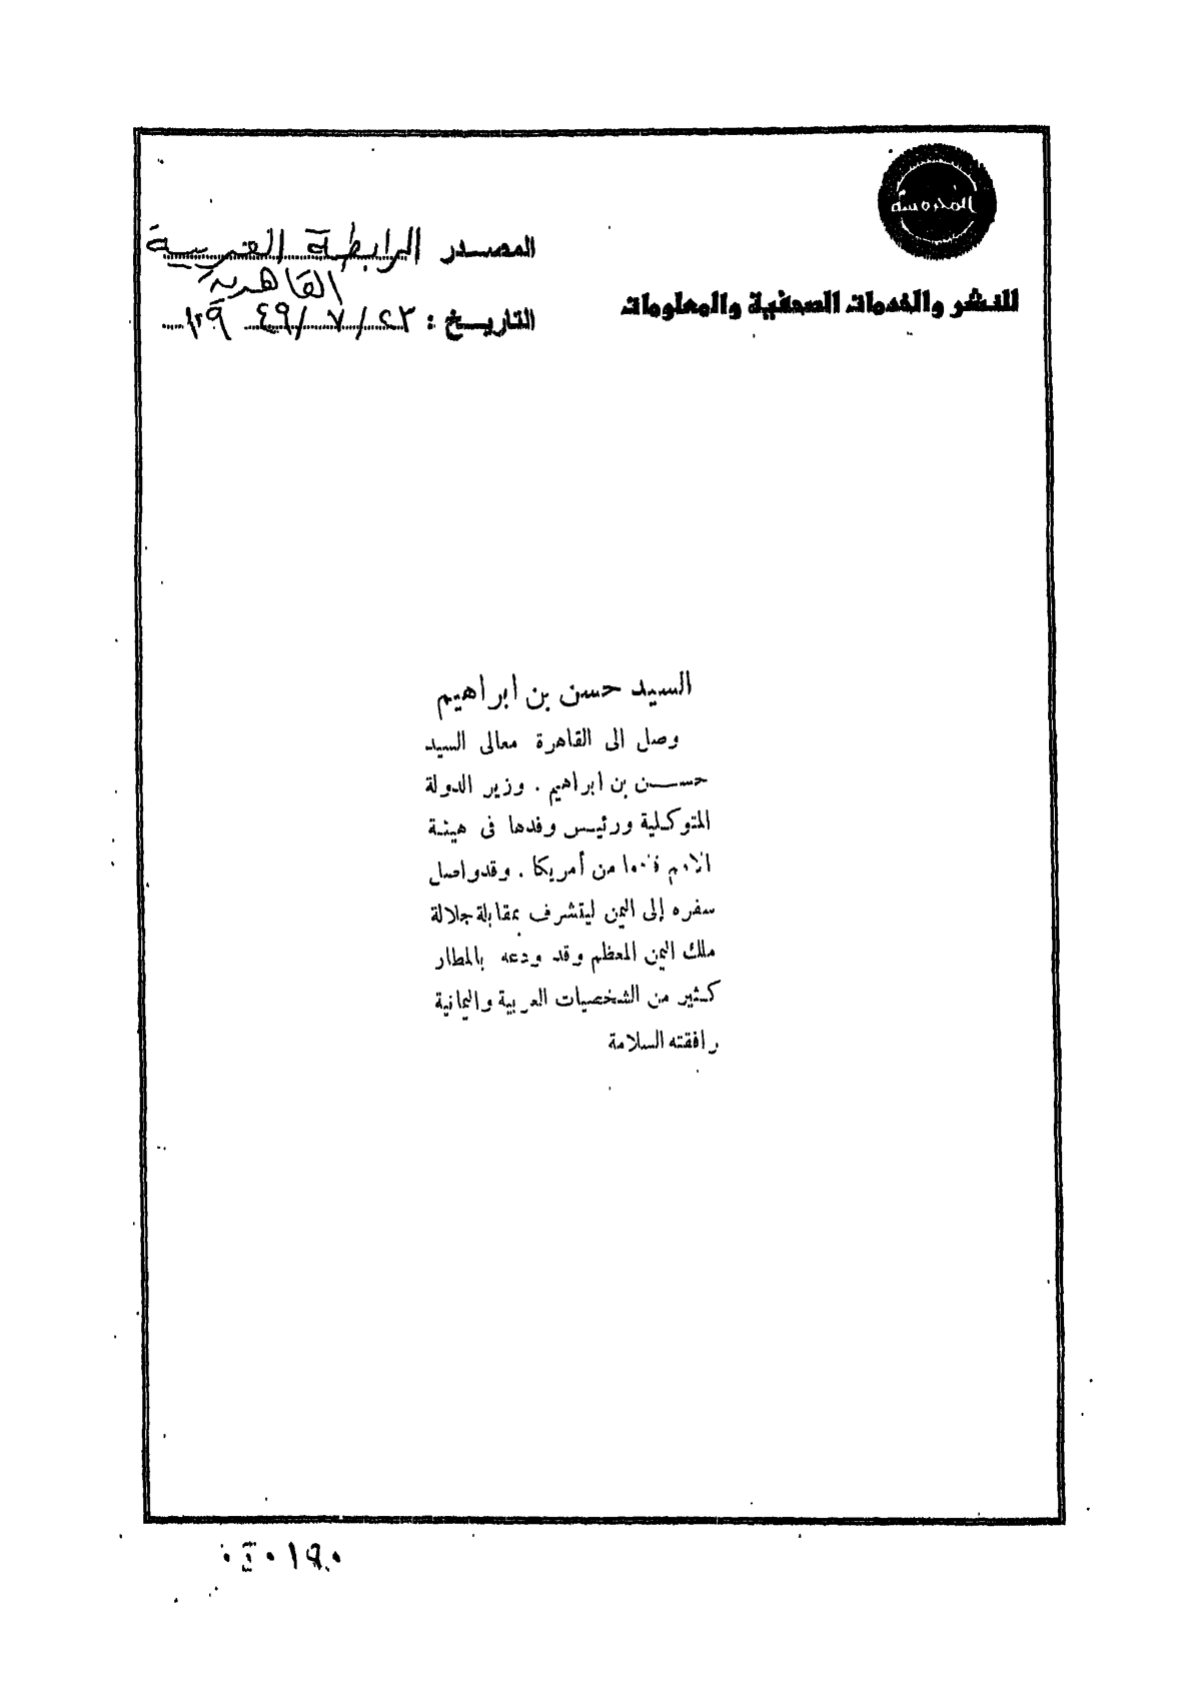 المحروسة
للنشر والخدمات الصحفية والمعلومات
المصدر الرابطة العربية
القاهرية
التاريخ : ٢٣ / ٧ / ٤٩
السيد حسن بن ابراهيم
وصل الى القاهرة معالى السيد
حسن بن ابراهيم . وزير الدولة
المتوكلية ورئيس وفدها فى هيئة
الامم من أمريكا . وقد واصل
سفره إلى اليمن ليتشرف بمقابلة جلالة
ملك اليمن المعظم وقد ودعه بالمطار
كثير من الشخصيات العربية واليمانية
رافقته السلامة